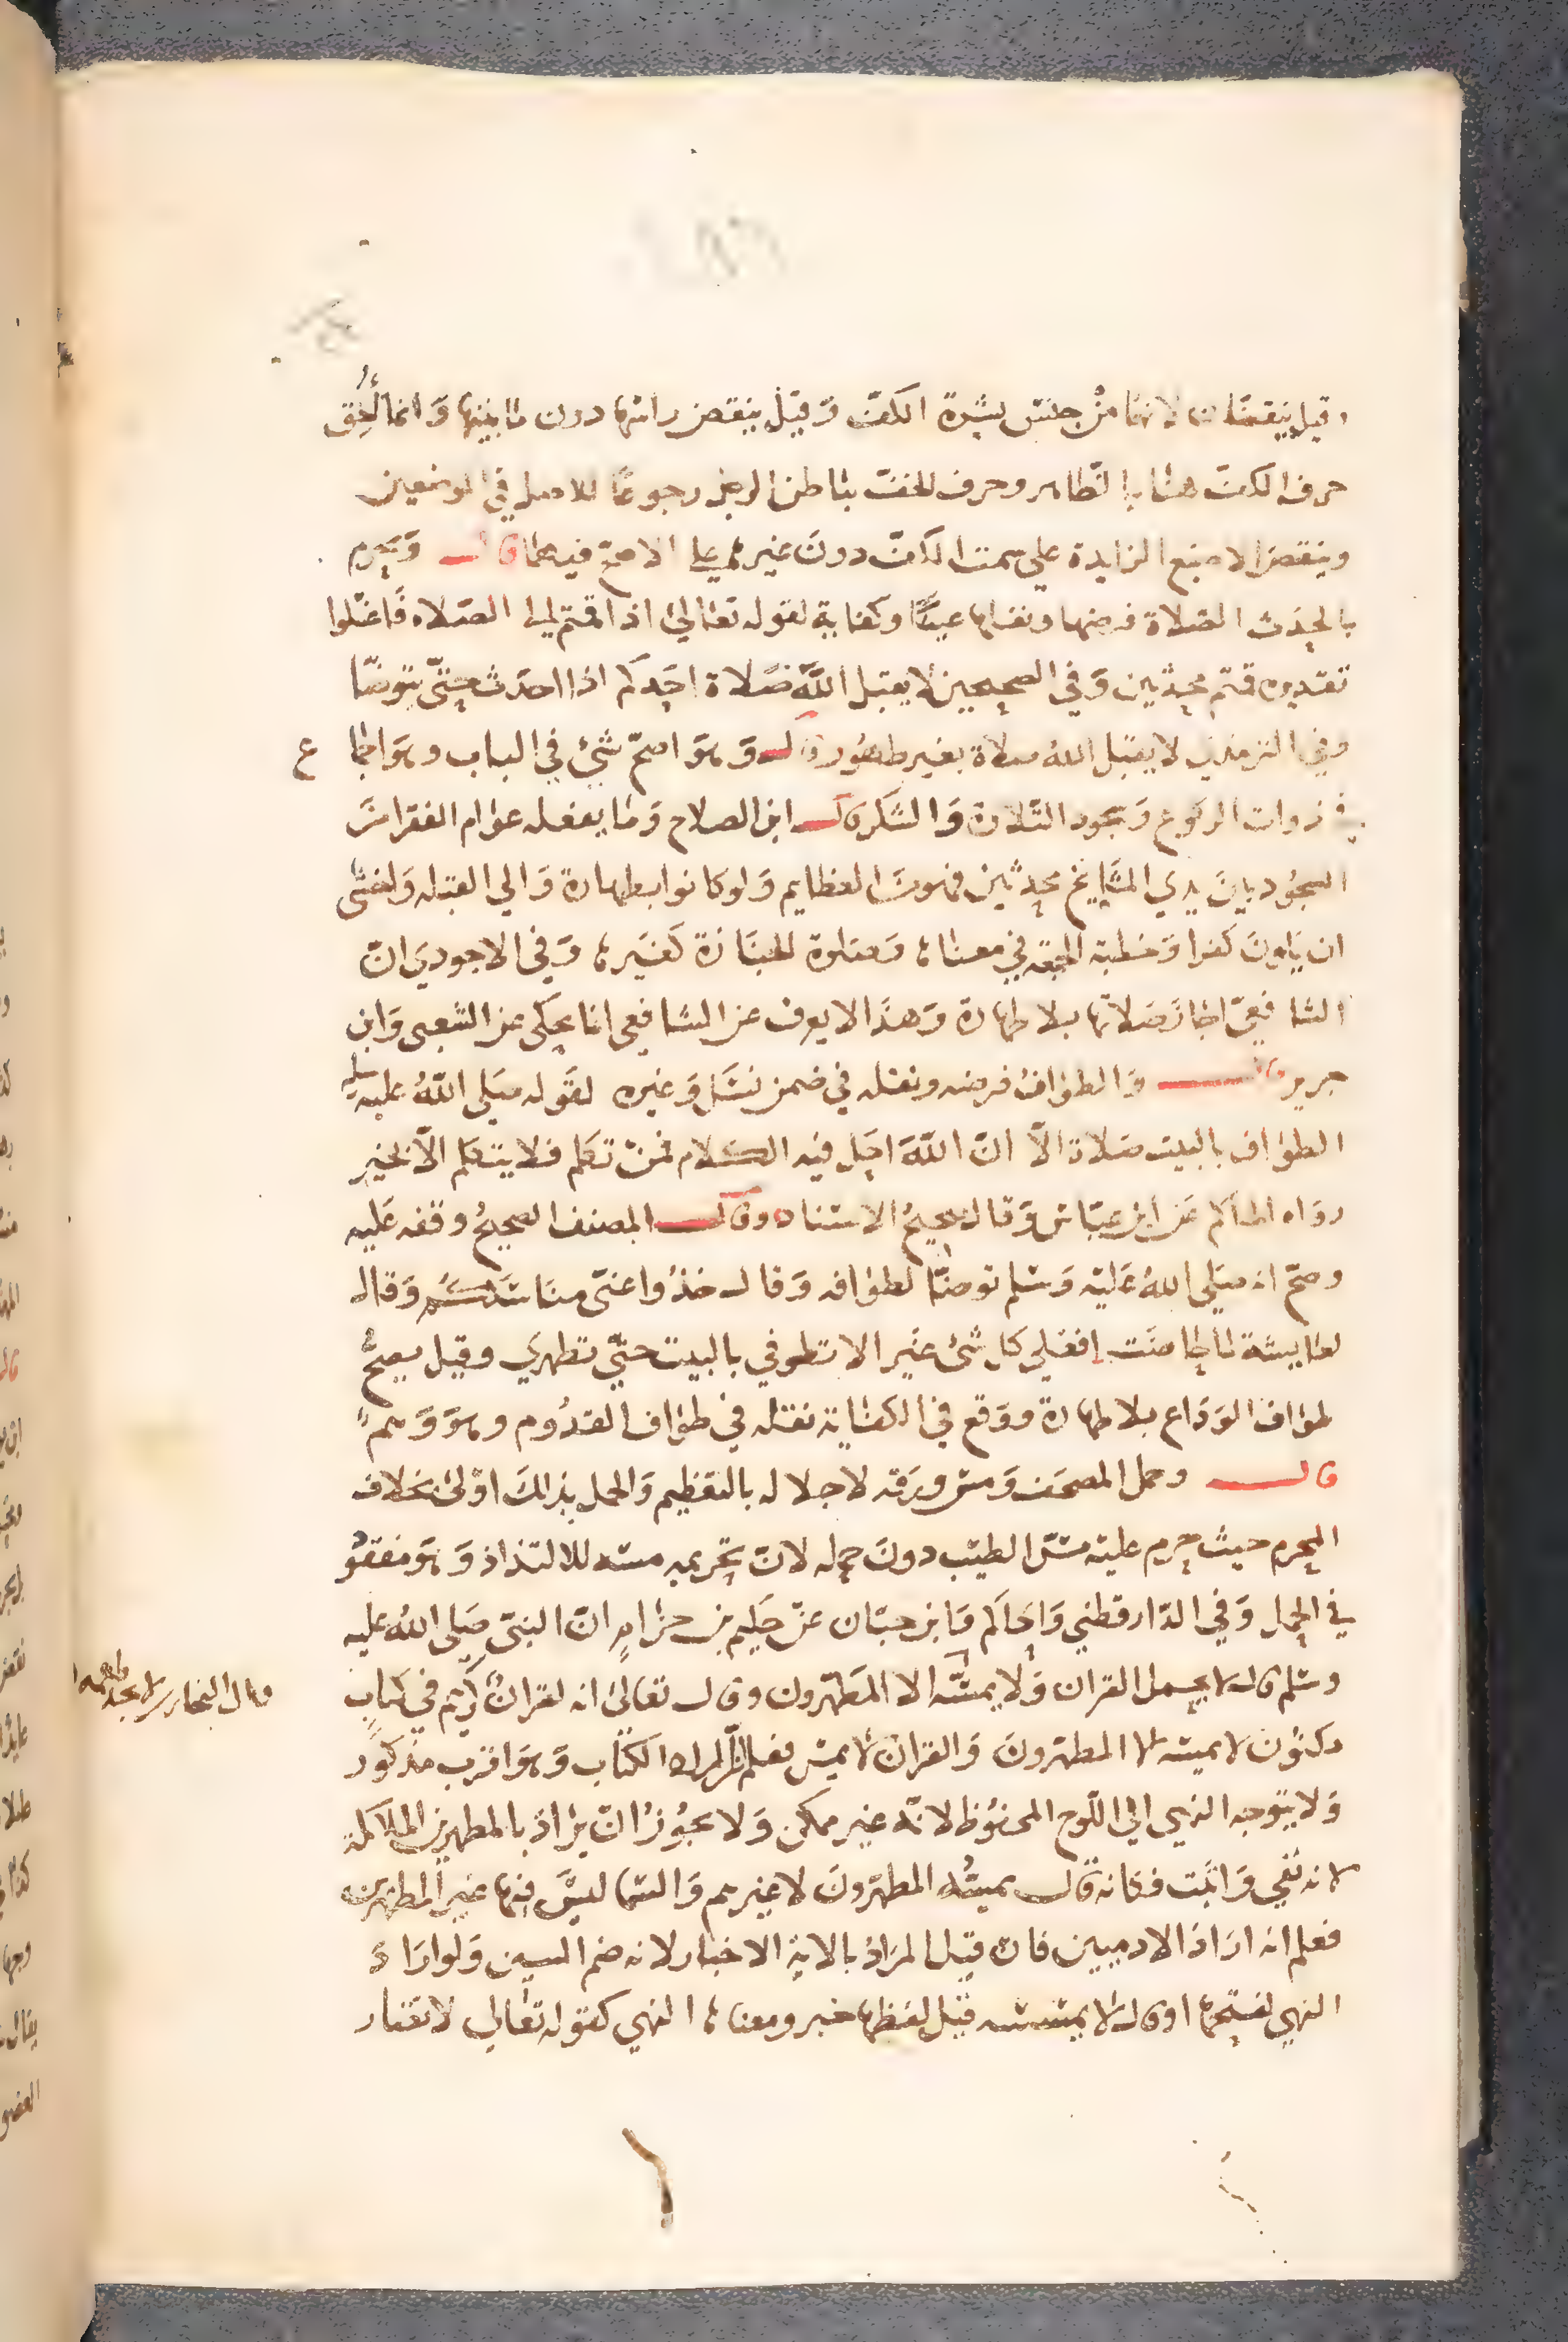 وقيل ينقضان لانهما من جنس بشرة الكف وقيل ينقض راسها دون ما بينها وانما الحق
حرف الكف هنا بالظاهر وحرف الخف بباطن الرجل رجوعا للاصل في الموضعين
وينقض الاصبع الزايدة علي سمت الكف دون غيره علي الاصح فيهما قال ويحرم
بالحدث الصلاة فرضها ونفلها عينًا وكفاية لقوله تعالي اذا قمتم الي الصلاه فاغسلوا
تقديره قمتم محدثين وفي الصحيحين لا يقبل الله صلاة احدكم اذا احدث حتى يتوضا
وفي الترمذي لا يقبل الله صلاة بغير طهور قال وهو اصح شئ في الباب وهو اجماع
في ذوات الركوع وسجود التلاوة والشكر قال ابن الصلاح وما يفعله عوام الفقرا من
السجود بين يدي المشايخ محدثين فهو من العظايم ولو كانوا بطهارة والي القبله واخشى
ان يكون كفرا وخطبة الجمعة في معناه وصلاة الجنازة كغيره وفي الاجودي ان
الشافعي اجاز صلاتها بلا طهارة وهذا لا يعرف عن الشافعي انما يحكى عن الشعبي وابن
جرير قال والطواف فرضه ونفله في ضمن نسك وغيره لقوله صلى الله عليه وسلم
الطواف بالبيت صلاة الا ان الله احل فيه الكلام فمن تكلم فلا يتكلم الا بخير
رواه الحاكم عن ابن عباس وقال صحيح الاسناد وقال المصنف الصحيح وقفه عليه
وصح انه صلى الله عليه وسلم توضا لطوافه وقال خذوا عني مناسككم وقال
لعايشة لما حاضت افعلي كل شئ غير الا تطوفي بالبيت حتى تطهري وقيل يصح
طواف الوداع بلا طهارة ووقع في الكفاية نقله في طواف القدوم وهو وهم
قال وحمل المصحف ومس ورقه لاجلاله بالتعظيم والحمل بذلك اولى بخلاف
المحرم حيث حرم عليه مس الطيب دون حمله لان تحريمه مسه للالتذاذ وهو مفقود
في الحمل وفي الدارقطني والحاكم وابن حبان عن حكيم بن حزام ان النبي صلى الله عليه
وسلم قال لا يحمل القران ولا يمسه الا المطهرون وقال تعالى انه لقران كريم في كتاب
مكنون لا يمسه الا المطهرون والقران لا يمس فعلم ان المراد الكتاب وهو اقرب مذكور
ولا يتوجه النهي الي اللوح المحفوظ لانه غير ممكن ولا يجوز ان يراد بالمطهرين الملائكة
لانه نفي واثبت فكانه قال يمسه المطهرون لا غيرهم والسما ليس فيها غير المطهرين
فعلم انه اراد الادميين فان قيل المراد بالاية الاخبار لانه ضم السين ولو اراد
النهي لفتحها او قال لا يمسسه قيل لفظها خبر ومعناه النهي كقوله تعالي لا تضار
قال البخاري لا يجد طعمه